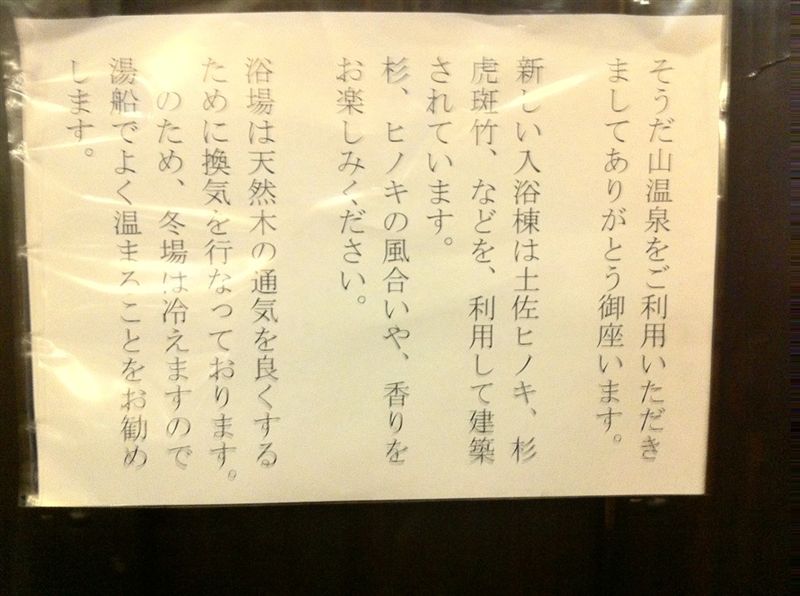 そうだ山温泉をご利用いただき
ましてありがとう御座います。
新しい入浴棟は土佐ヒノキ、杉
虎斑竹、などを、利用して建築
されています。
杉、ヒノキの風合いや、香りを
お楽しみください。
浴場は天然木の通気を良くする
ために換気を行なっております。
のため、冬場は冷えますので
湯船でよく温まることをお勧め
します。